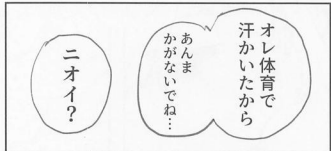 オレ体育で
汗かいたから
あんま
かがないでね…
ニオイ？